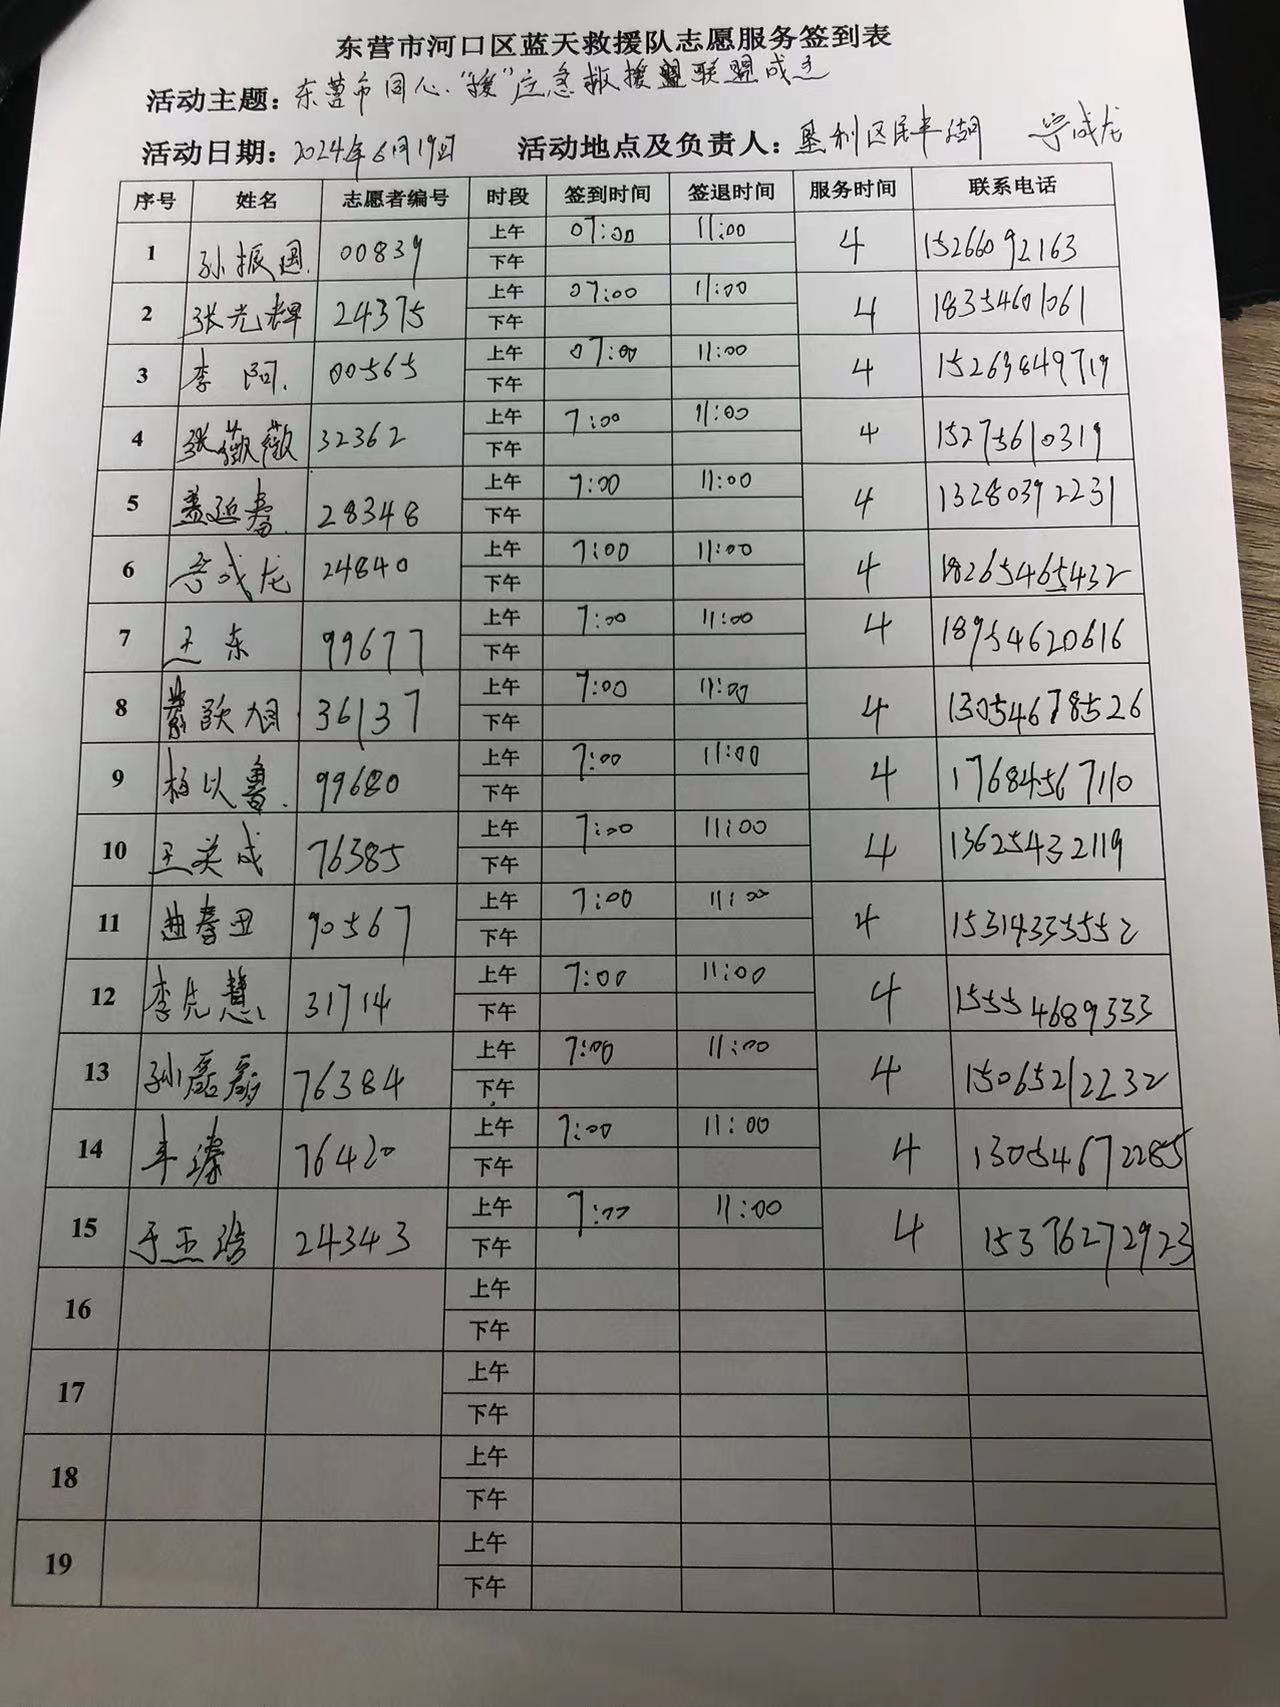 东营市河口区蓝天救援队志愿服务签到表
活动主题：东营市同心"援"应急救援盟联盟成立
活动日期：2024年6月19日 活动地点及负责人：垦利区民丰湖 宁成龙
序号 姓名 志愿者编号 时段 签到时间 签退时间 服务时间 联系电话
1 孙振国 00839 上午 07:00 11:00 4 15266092163
下午
2 张光辉 24375 上午 07:00 11:00 4 18354601061
下午
3 李 00565 上午 07:00 11:00 4 15263849719
下午
4 张薇薇 32362 上午 7:00 11:00 4 15275610319
下午
5 盖延春 28348 上午 7:00 11:00 4 13280392231
下午
6 宁成龙 24840 上午 7:00 11:00 4 18265465432
下午
7 王东 99677 上午 7:00 11:00 4 18954620616
下午
8 36137 上午 7:00 11:00 4 13054678526
下午
9 以鲁 99680 上午 7:00 11:00 4 17684567110
下午
10 王关成 76385 上午 7:00 11:00 4 13625432119
下午
11 90567 上午 7:00 11:00 4 15314333552
下午
12 李先慧 31714 上午 7:00 11:00 4 15554689333
下午
13 孙磊磊 76384 上午 7:00 11:00 4 15065212232
下午
14 76420 上午 7:00 11:00 4 13054672285
下午
15 于玉 24343 上午 7:00 11:00 4 15376272923
下午
16 上午
下午
17 上午
下午
18 上午
下午
19 上午
下午